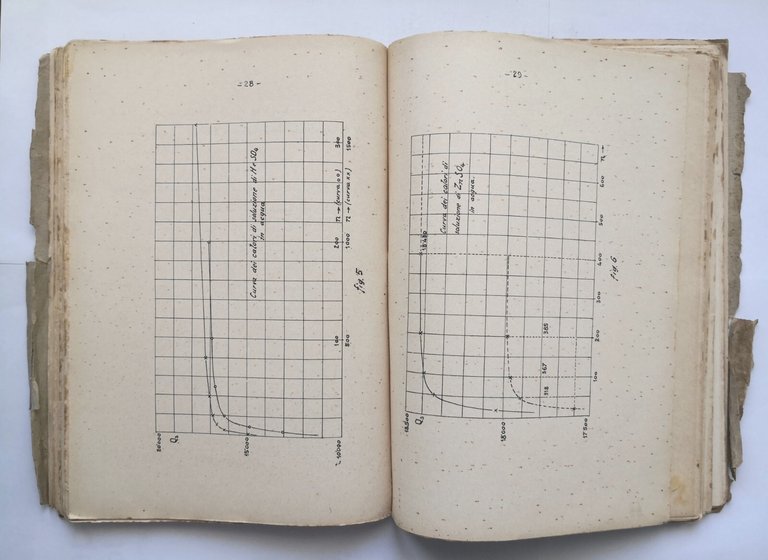 - 28 -
Curva dei calori di soluzione di H2SO4
in acqua
n → (curva oo)
n → (curva xx)
100
200
300
500
1000
1500
20000
Q₀
15000
10000
fig. 5
- 29 -
Curva dei calori di
soluzione di ZnSO4
in acqua
18430
n →
100
200
300
400
500
600
318
367
385
Q₀
18000
17500
fig 6